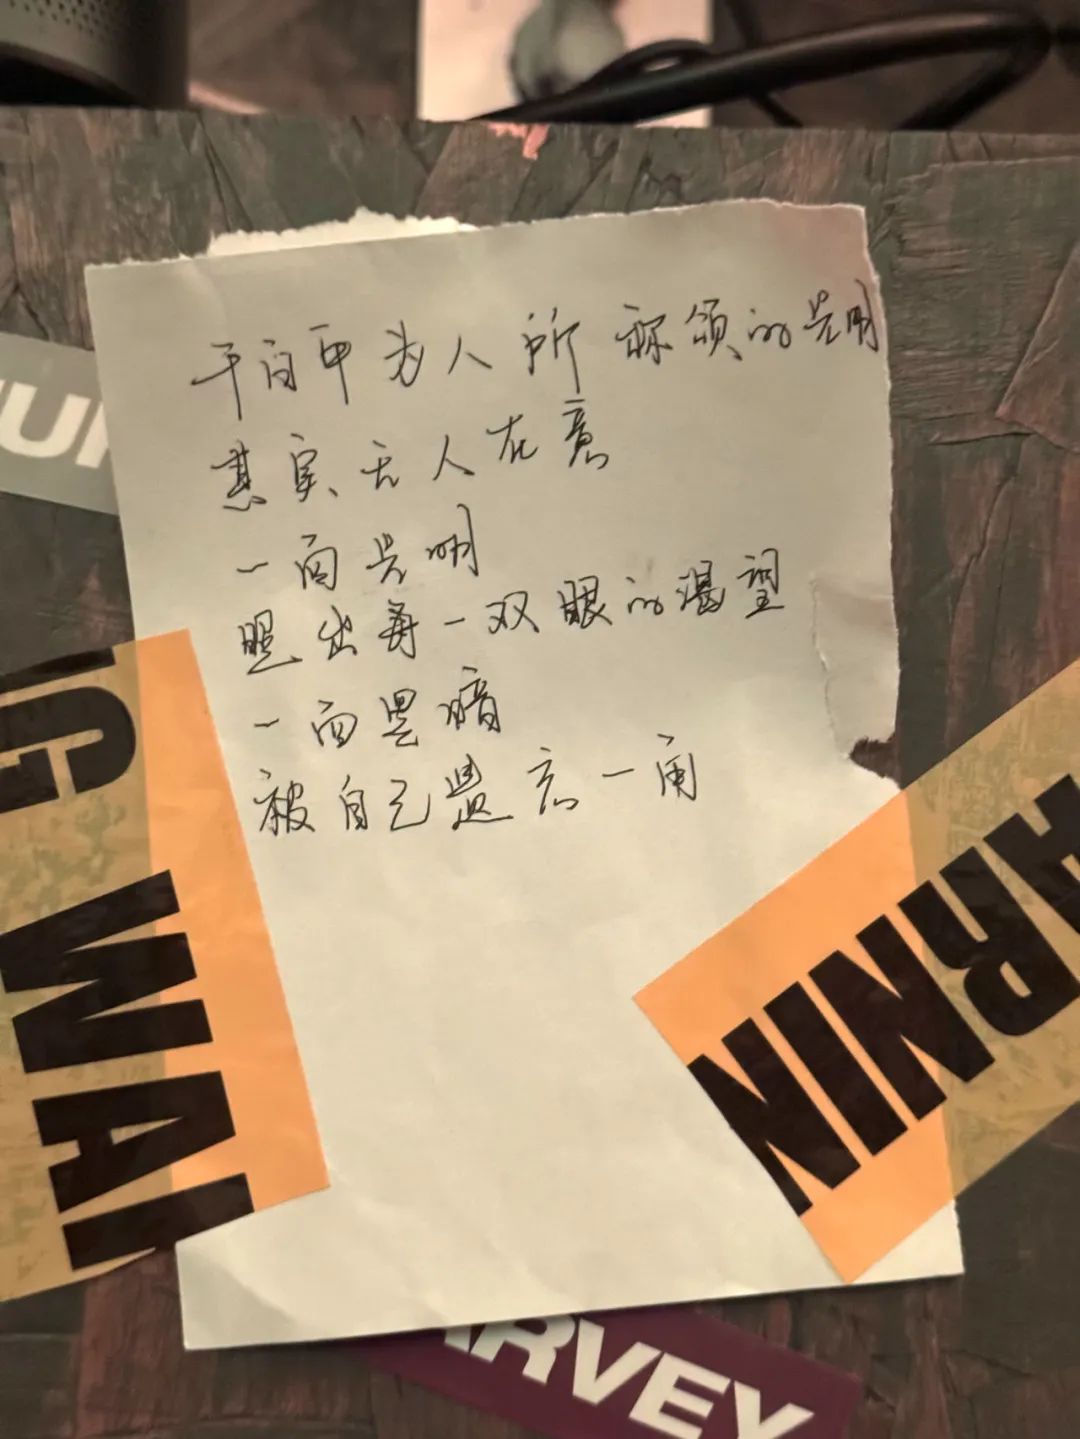 千百年为人所称颂的光明
其实无人在意
一面光明
照出每一双眼的渴望
一面黑暗
被自己遗忘一角
UR
G WAR
ARNIN
ARVEY